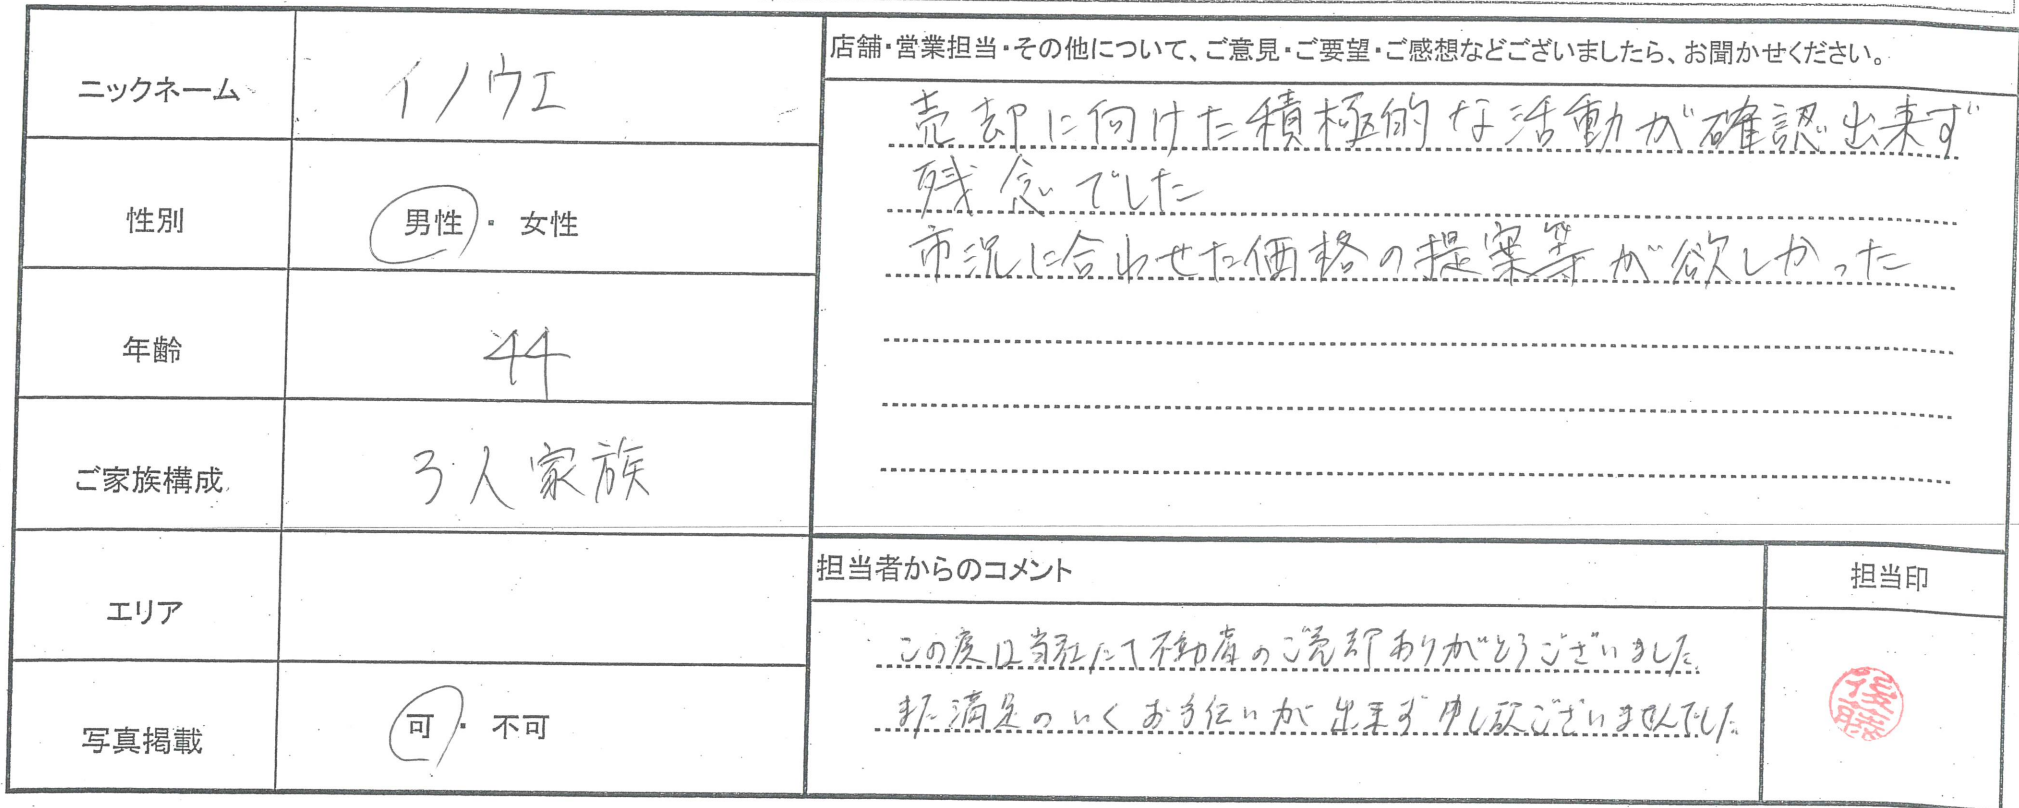 ニックネーム
イノウエ
性別
男性・女性
年齢
44
ご家族構成
3人家族
エリア
写真掲載
可・不可
店舗・営業担当・その他について、ご意見・ご要望・ご感想などございましたら、お聞かせください。
売却に向けた積極的な活動が確認出来ず
残念でした
市況に合わせた価格の提案等が欲しかった
担当者からのコメント
担当印
この度は当社にて不動産のご売却ありがとうございました。
また満足のいくお手伝いが出来ず申し訳ございませんでした。
後藤